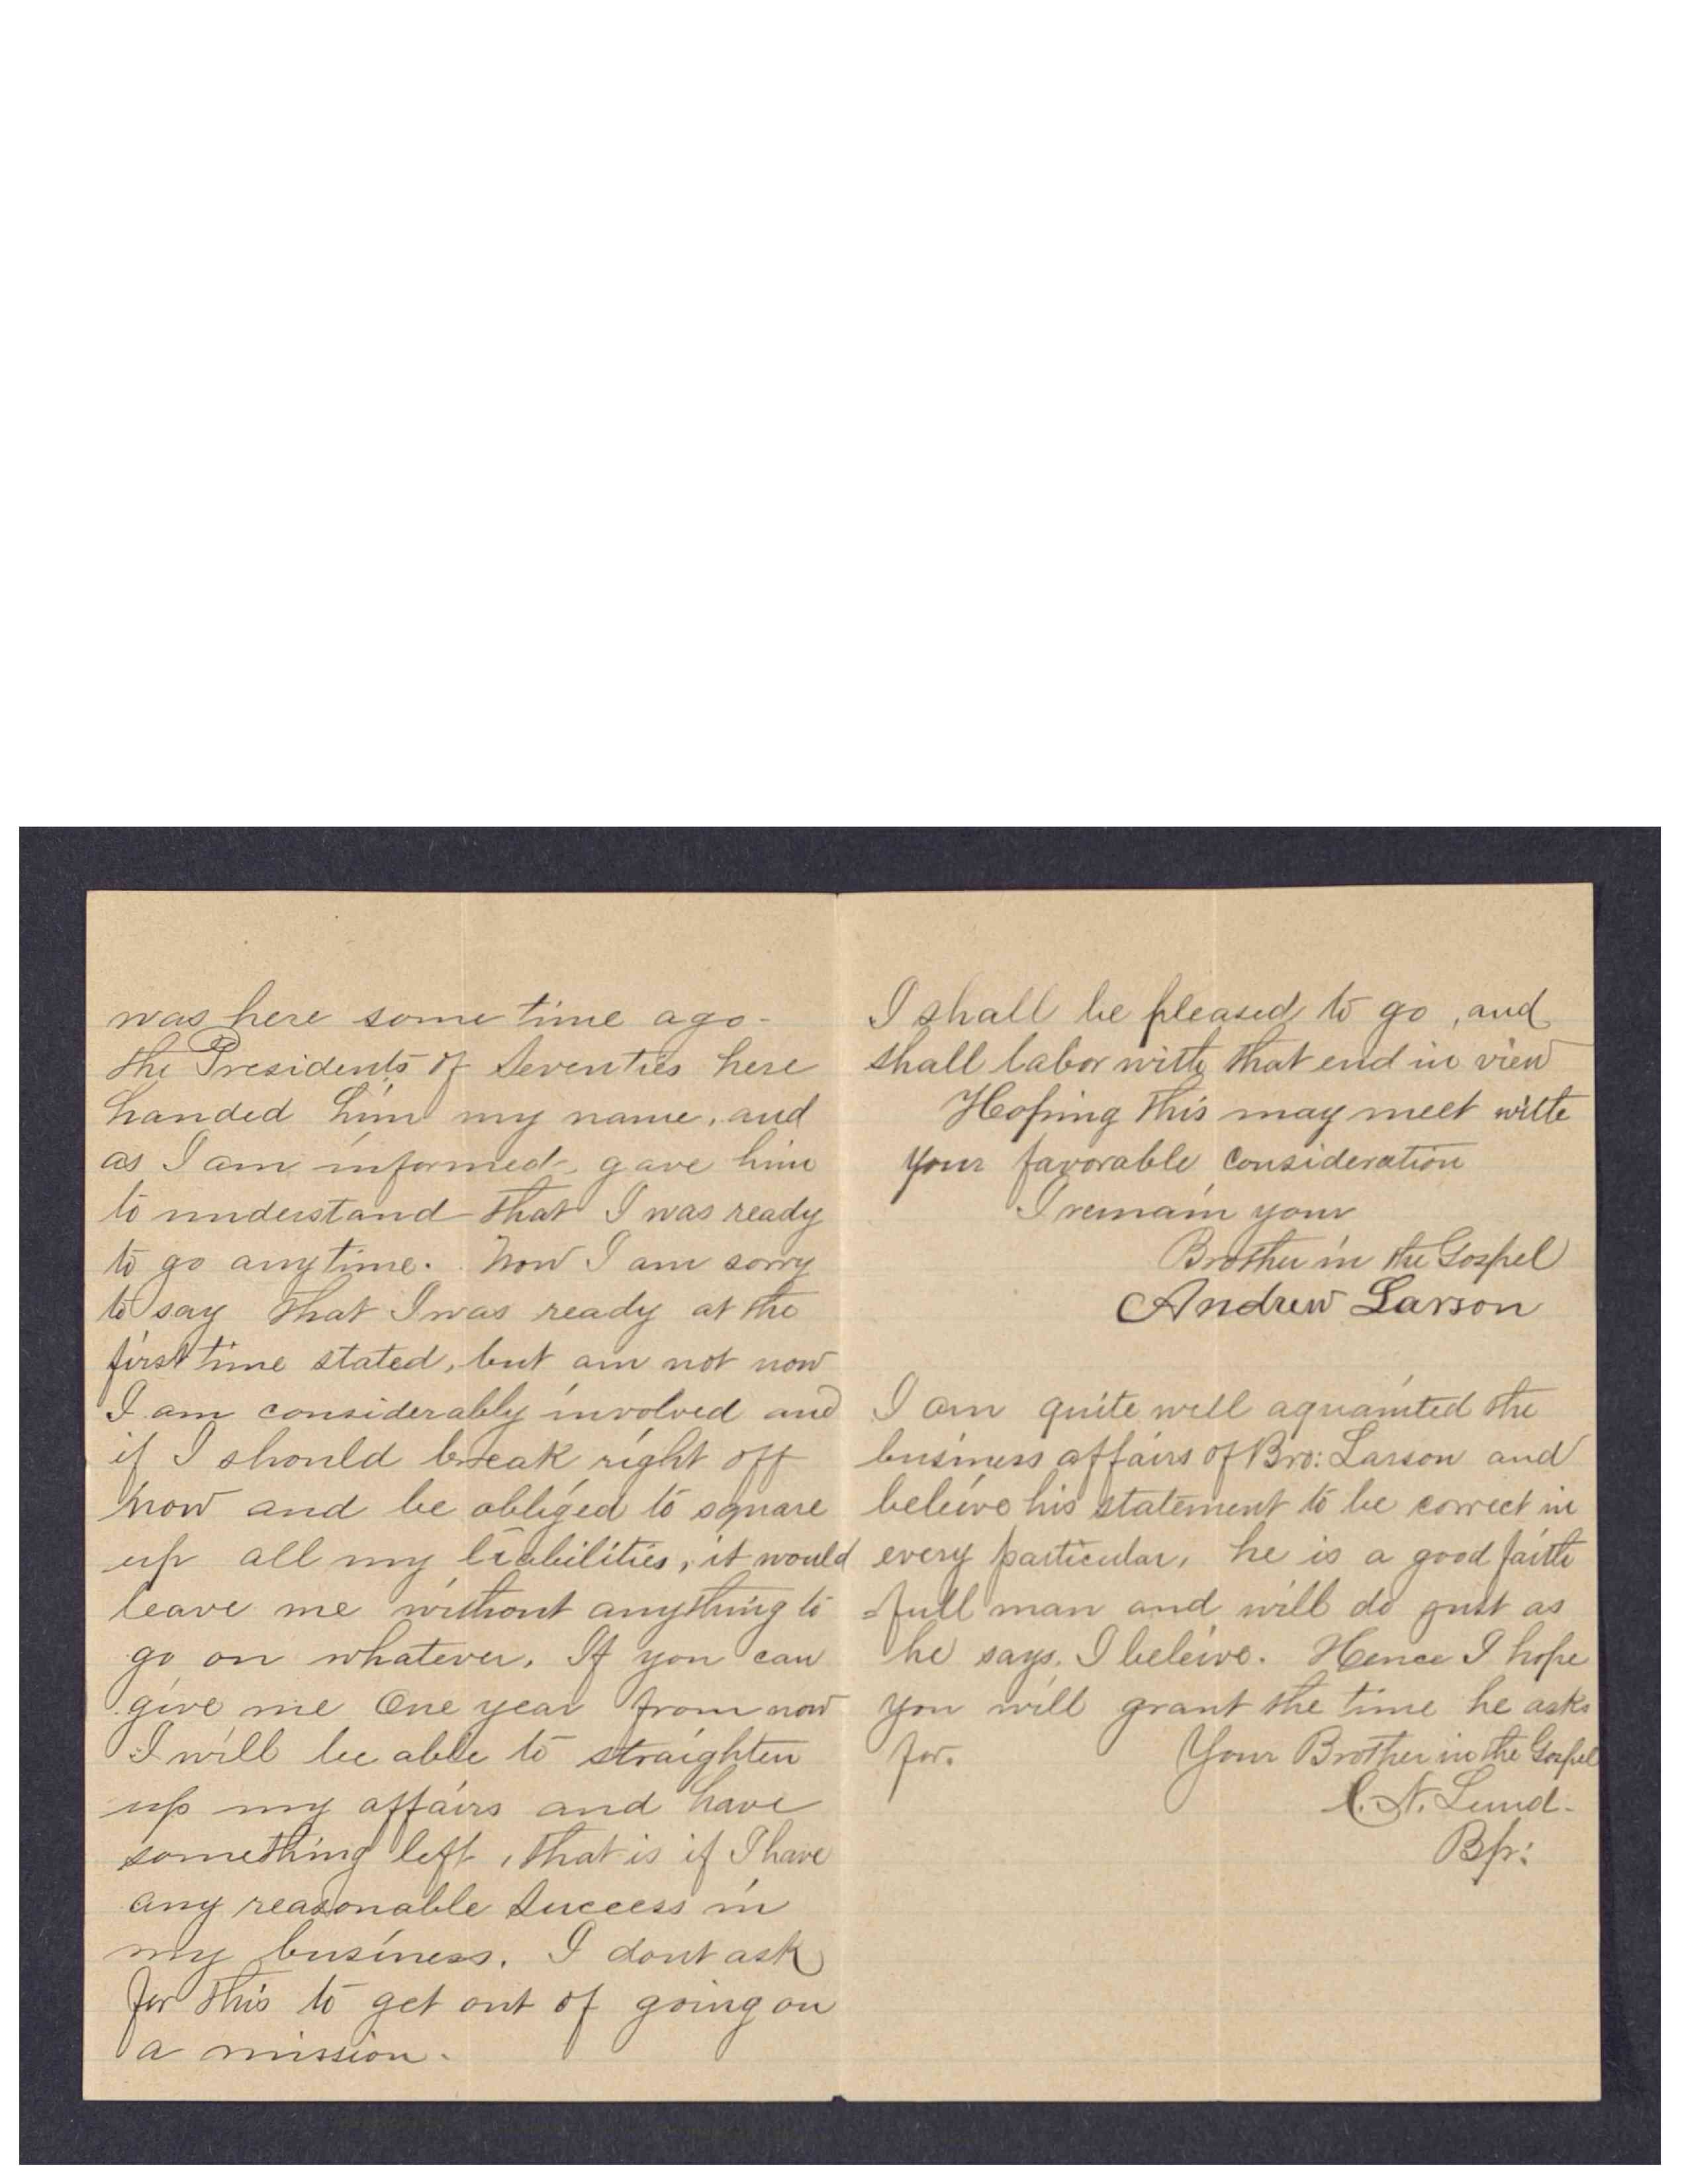 was here some time ago -
the Presidents of Seventies here
handed him my name, and
as I am informed gave him
to understand that I was ready
to go anytime. Now I am sorry
to say that I was ready at the
first time stated, but am not now
I am considerably involved and
if I should break right off
now and be obliged to square
up all my liabilities, it would
leave me without anything to
go on whatever. If you can
give me One year from now
I will be able to straighten
up my affairs and have
something left, that is if I have
any reasonable Success in
my business. I dont ask
for this to get out of going on
a mission.
I shall be pleased to go, and
shall labor with that end in view
Hoping this may meet with
your favorable consideration
I remain your
Brother in the Gospel
Andrew Larson
I am quite well aquainted the
business affairs of Bro: Larson and
beleive his statement to be correct in
every particular, he is a good faith
=full man and will do just as
he says, I beleive. Hence I hope
you will grant the time he asks
for. Your Brother in the Gospel
C. N. Lund.
Bp: